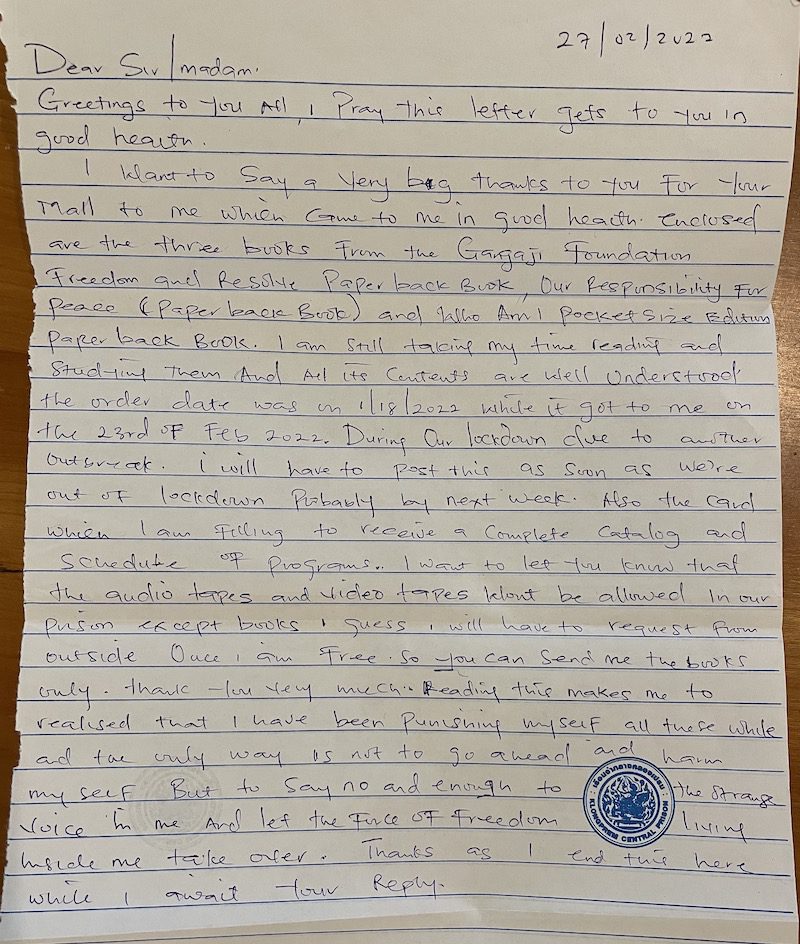 27/02/2022
Dear Sir/madam.
Greetings to you All, I Pray this letter gets to you in
good health.
I Want to Say a Very big thanks to you For Your
Mail to me which Came to me in good health. enclosed
are the three books From the Gangaji Foundation
Freedom and Resolve Paper back Book, Our Responsibility For
Peace (Paper back Book) and Who Am I Pocket Size Edition
Paper back Book. I am Still taking my time reading and
Studying them And All its Contents are Well Understood.
the order date was on 1/18/2022 while it got to me on
the 23rd of Feb 2022. During Our lockdown due to another
outbreak. i will have to post this as soon as We're
out of lockdown Probably by next week. Also the card
which I am Filling to receive a Complete Catalog and
Schedule of Programs.. I want to let You know that
the audio tapes and video tapes Wont be allowed In our
prison except books I guess I will have to request From
outside Once I am Free. So You can Send me the books
only. thank You Very much. Reading this makes me to
realised that I have been Punishing myself all these while
and the only way is not to go ahead and harm
my self But to Say no and enough to the Strange
Voice In me And let the Force of Freedom living
Inside me take over. Thanks as I end this here
while I await Your Reply.
เรือนจำกลางคลองเปรม
KLONGPREM CENTRAL PRISON